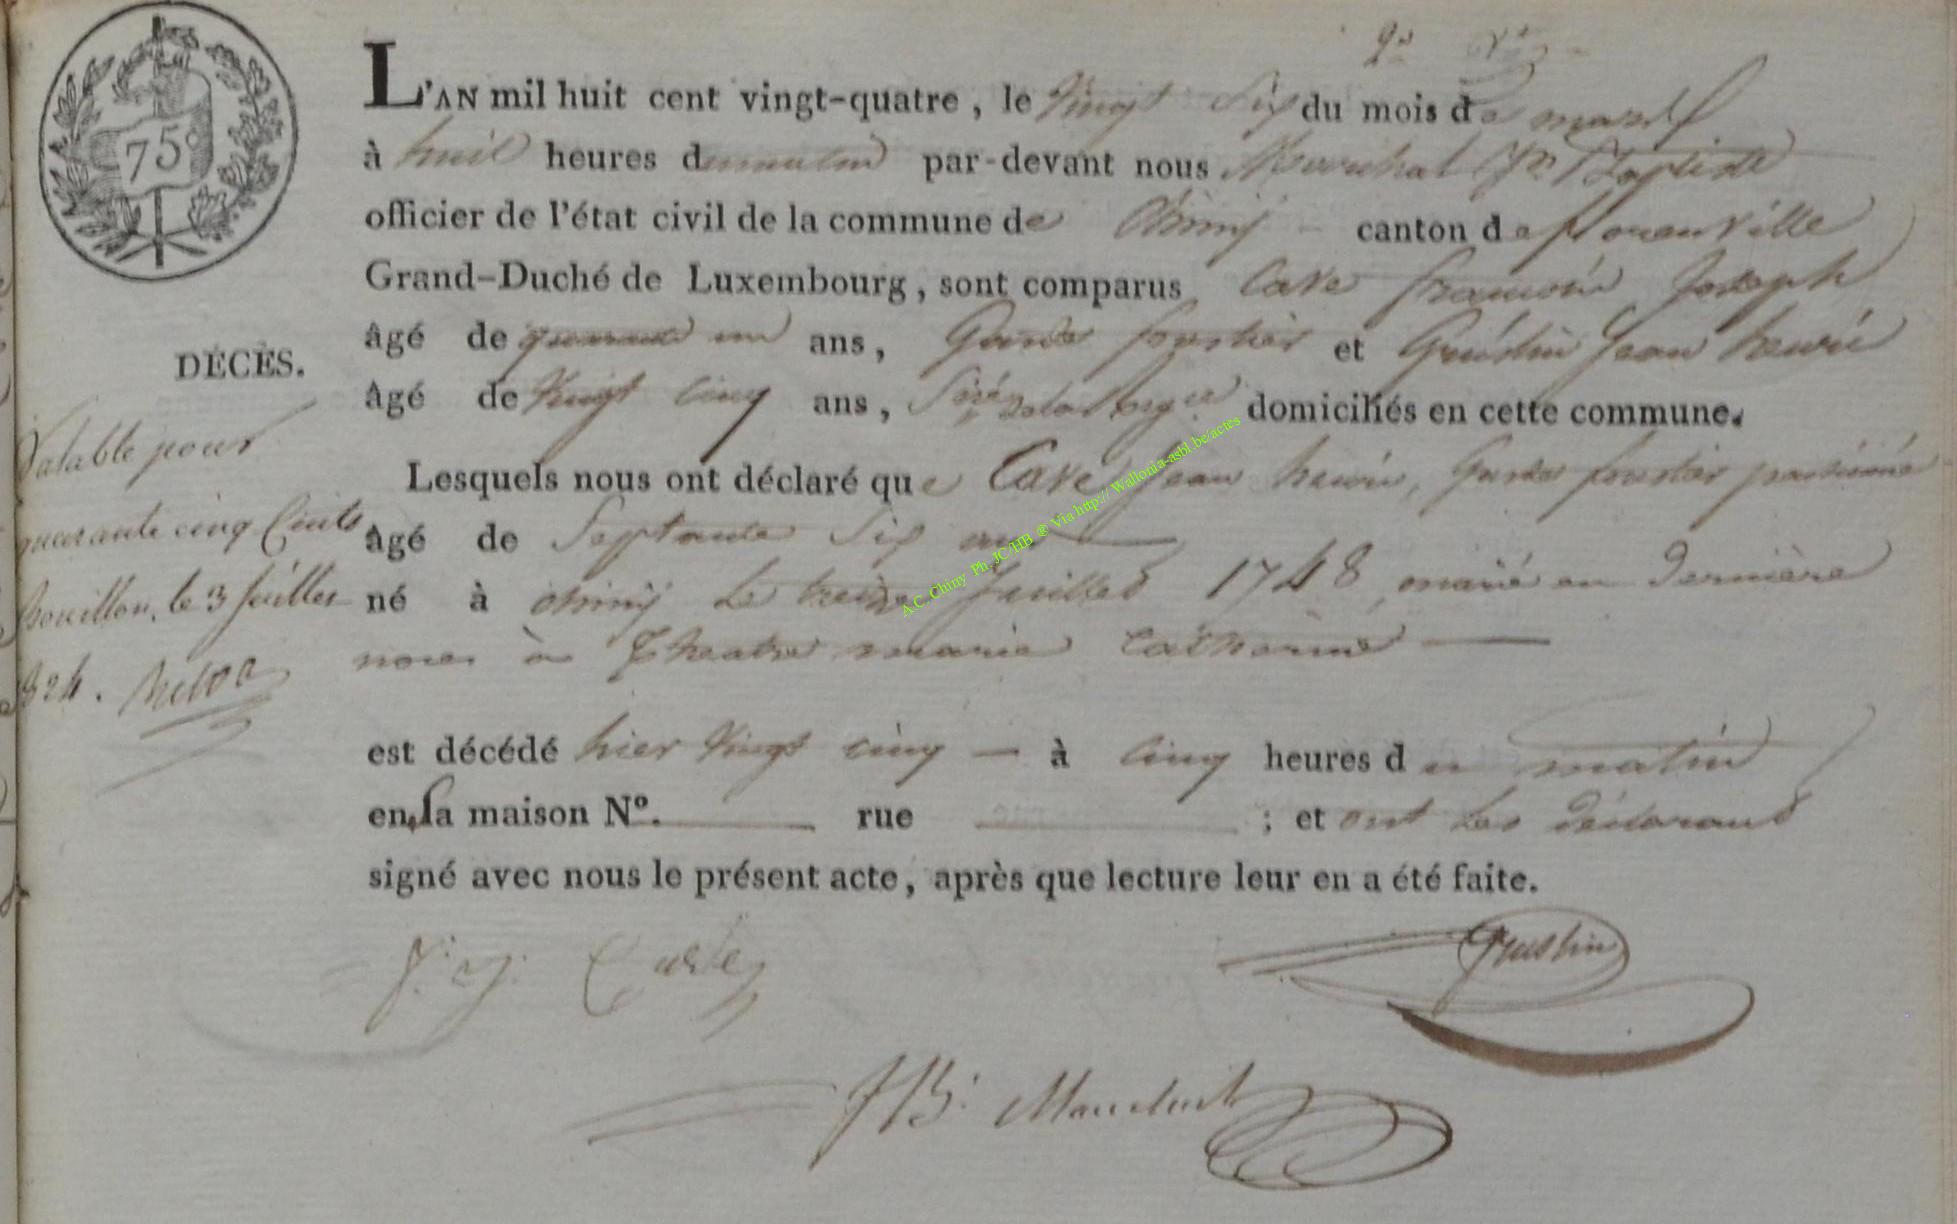 75
L'AN mil huit cent vingt-quatre, le Vingt Six du mois de mars
à huit heures du matin par-devant nous Marechal Jn Baptiste
officier de l'état civil de la commune de Chiny canton de florenville
Grand-Duché de Luxembourg, sont comparus Cave françois Joseph
âgé de quarante un ans, Garde forestier et Gustin Jean henri
âgé de Vingt cinq ans, domiciliés en cette commune.
DÉCÈS.
Valable pour
quarante cinq Cents
Bouillon, le 3 juillet
1824.
Lesquels nous ont déclaré que Cave Jean henri, Garde forestier pensionné
âgé de Septante Six ans
né à chiny Le treize Juillet 1748, marié en dernière
noces à Theatre marie Catherine
est décédé hier Vingt cinq à cinq heures du matin
en sa maison N°. rue ; et ont Les déclarans
signé avec nous le présent acte, après que lecture leur en a été faite.
Gustin
A.C. Chiny Ph. JC/HB @ Via http:// Wallonia-asbl.be/actes